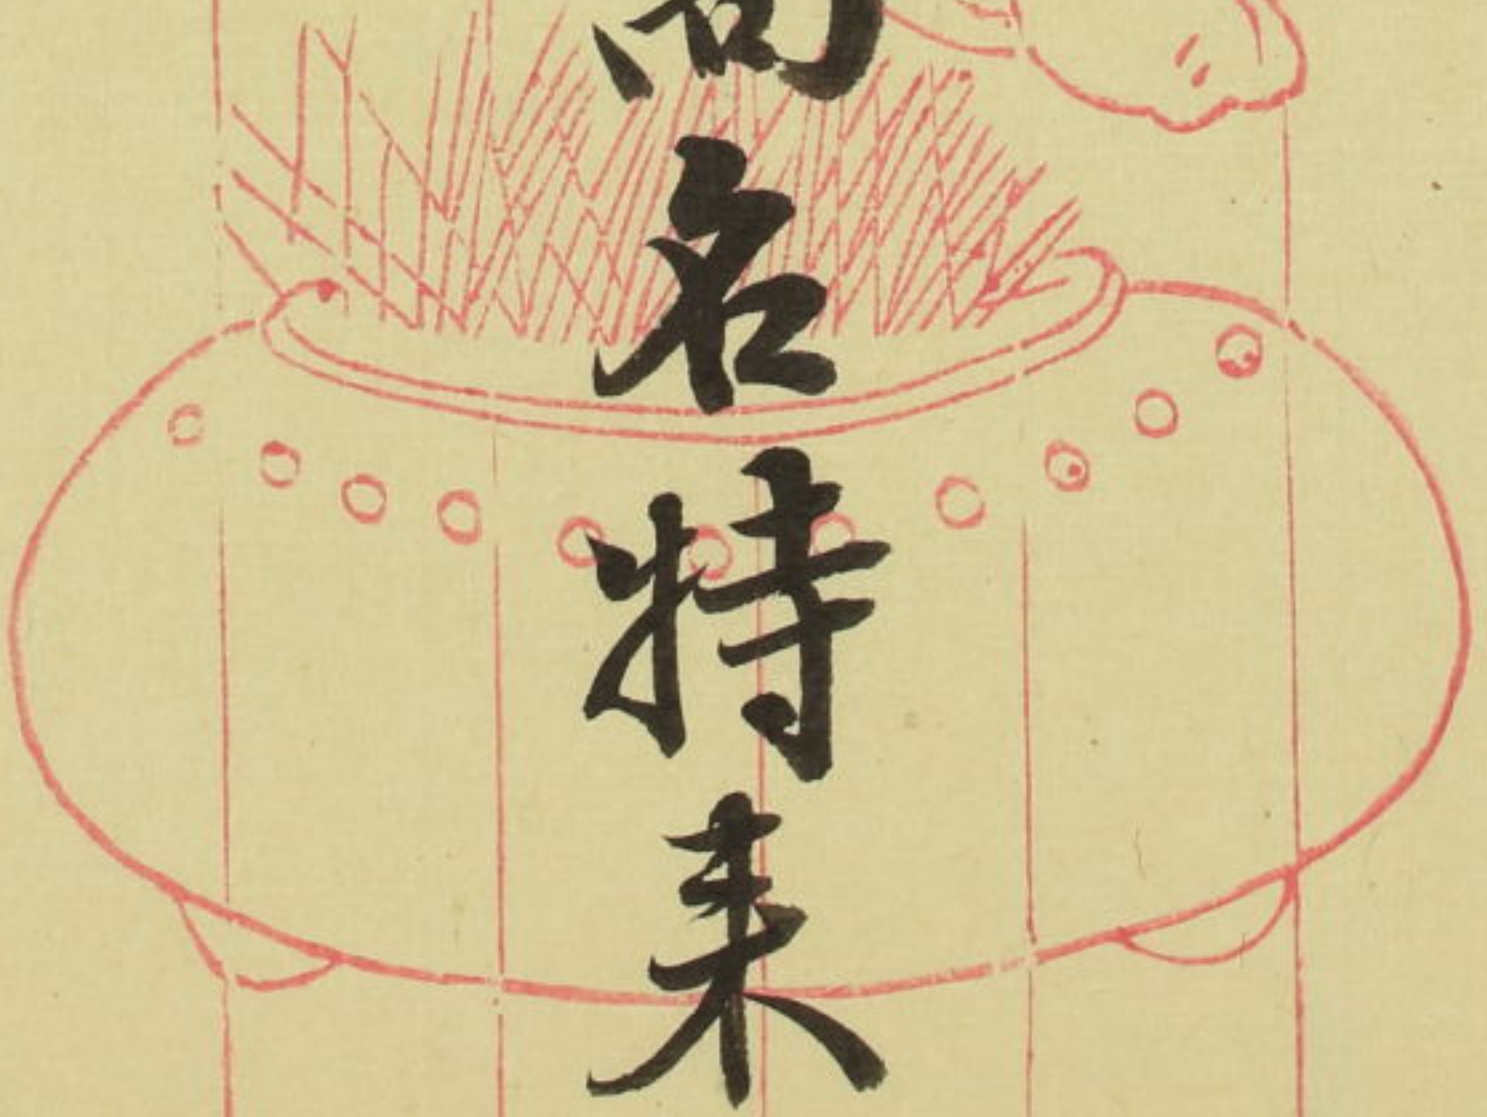 名特来